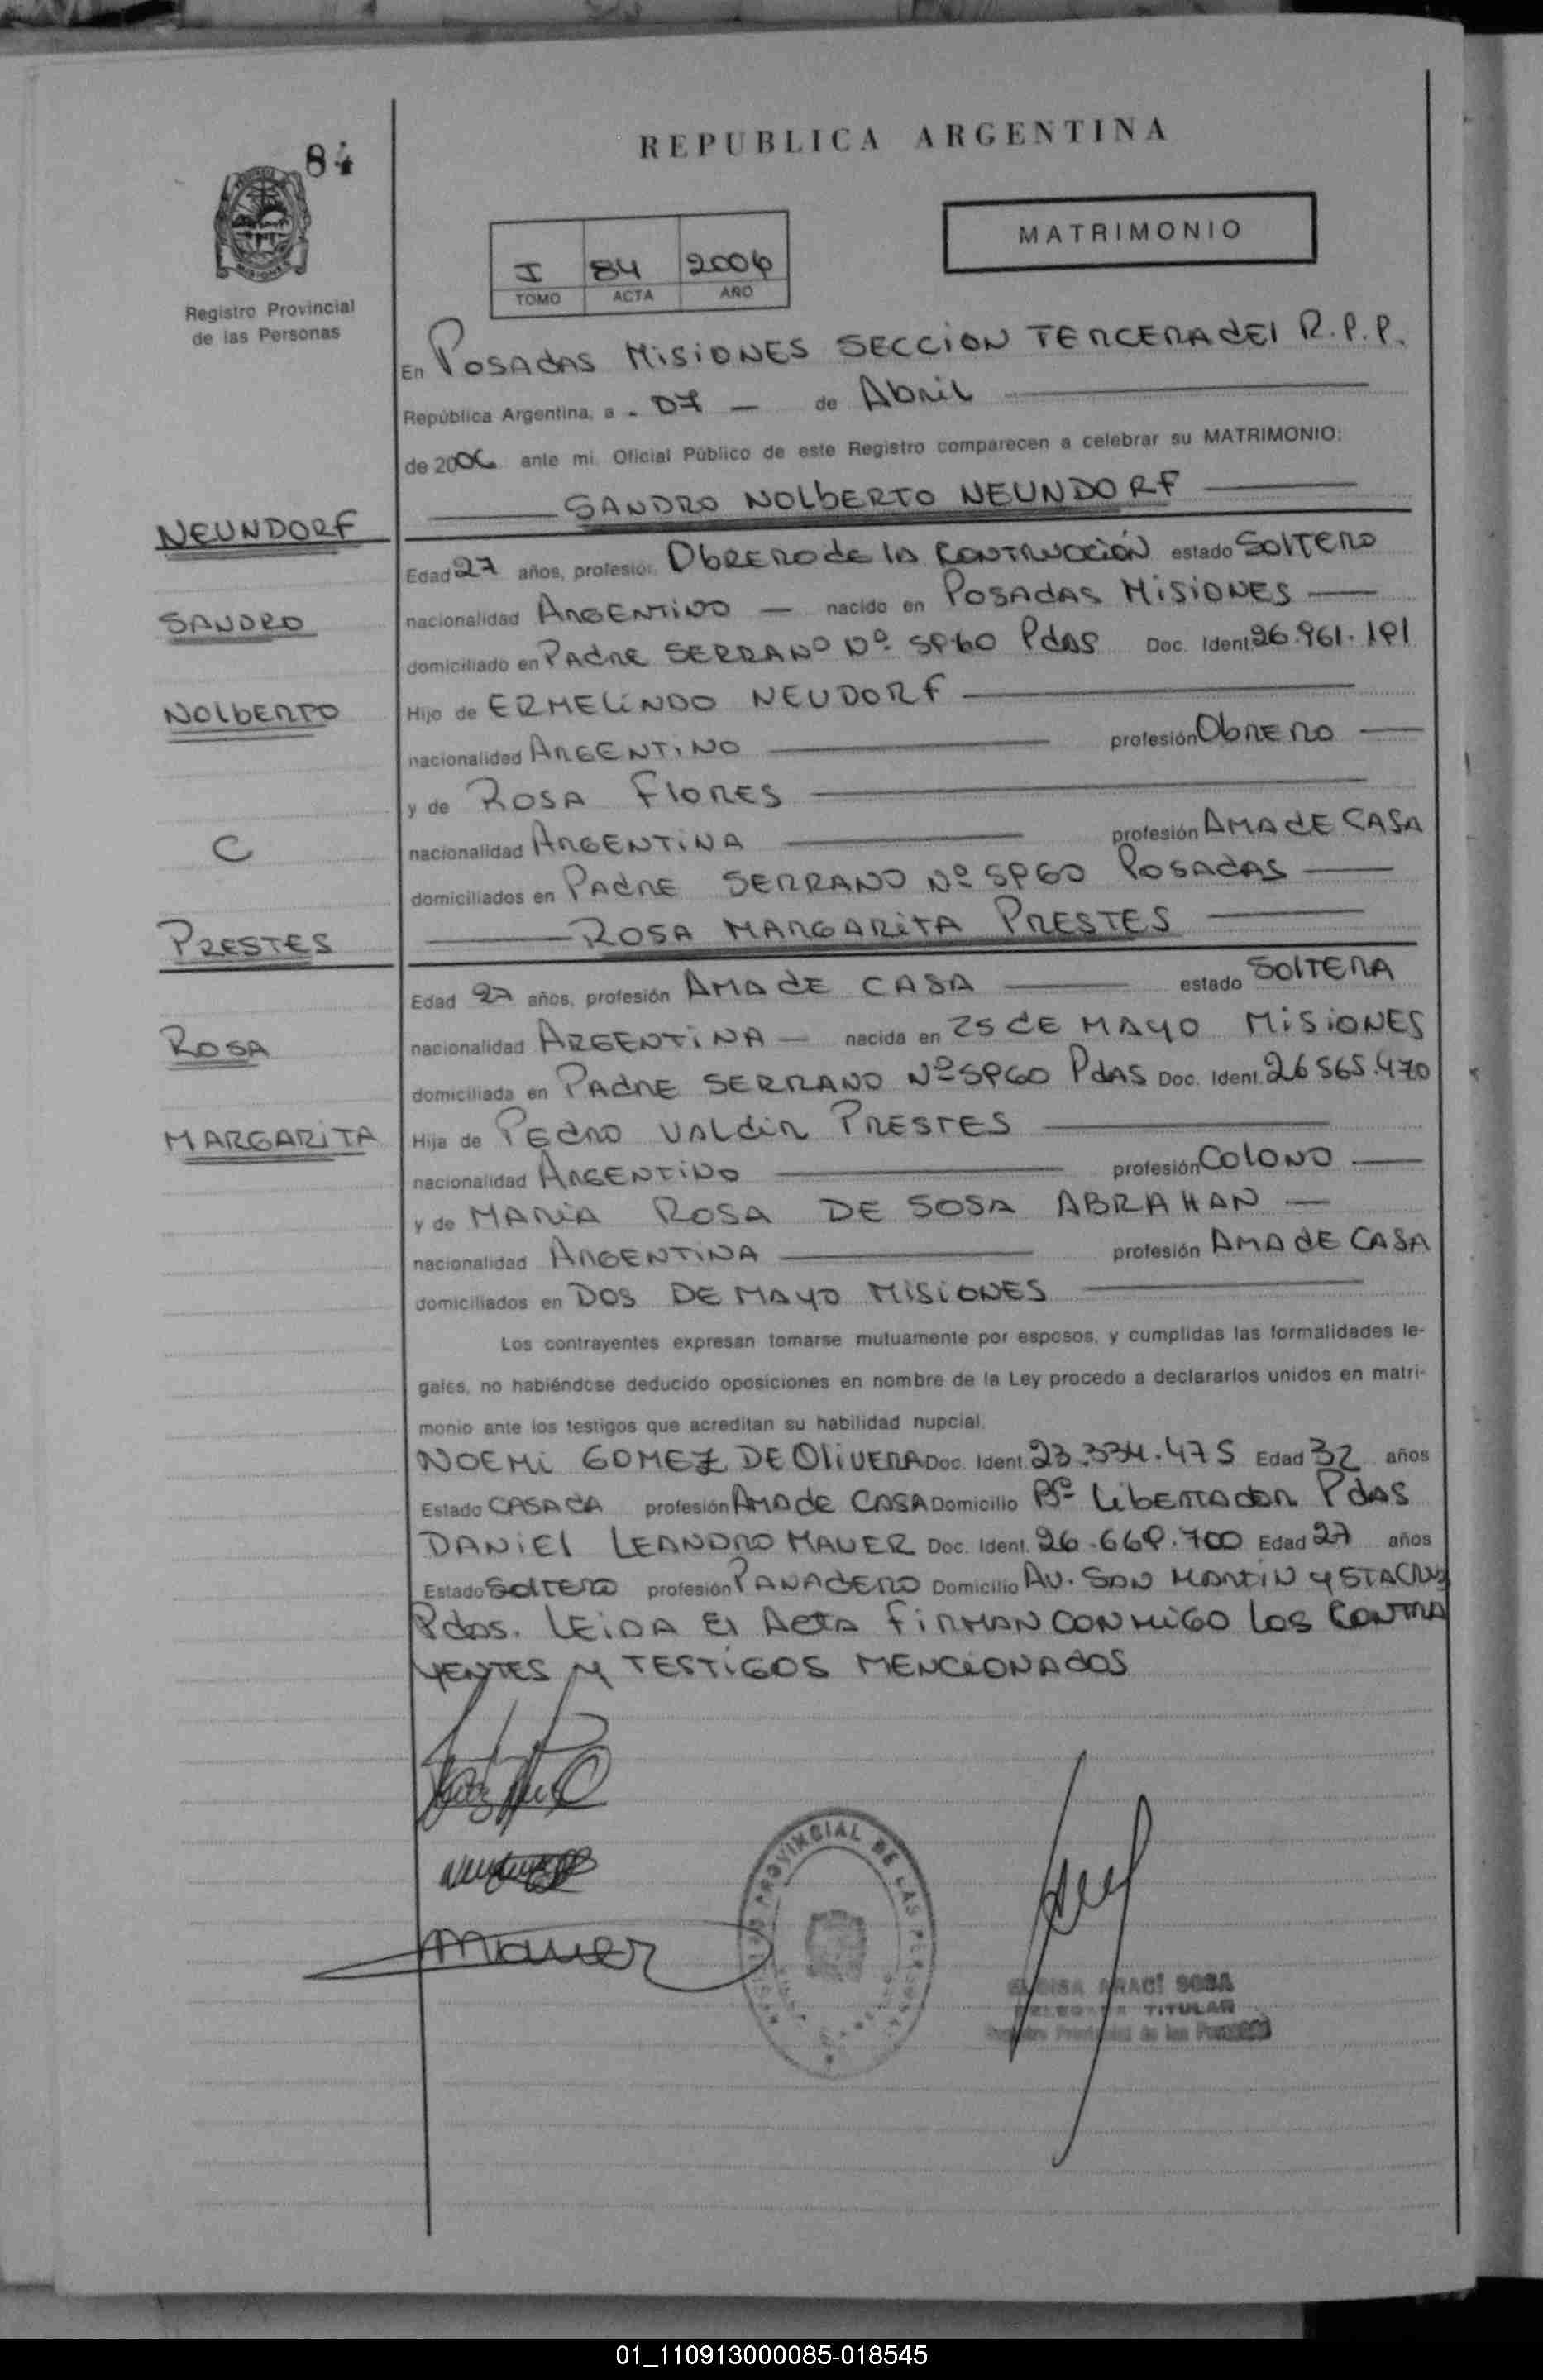 84
REPUBLICA ARGENTINA
MATRIMONIO
I 84 2006
TOMO ACTA AÑO
Registro Provincial
de las Personas
En POSADAS MISIONES SECCION TERCERA dEl R.P.P.
República Argentina, a - 07 — de Abril
de 2006 ante mi Oficial Público de este Registro comparecen a celebrar su MATRIMONIO:
SANDRO NOLbERTO NEUNDORF
NEUNDORF
Edad 27 años, profesión ObRERO de lA CONTRUCCIÓN estado SOlTERO
SANDRO
nacionalidad ARGENTINO — nacido en POSAdAS MISIONES
domiciliado en PAdRE SERRANO Nº 5960 PdAS Doc. Ident. 26.961.191
NOLbERTO
Hijo de ERMELINDO NEUDORF
nacionalidad ARGENTINO profesión ObRERO
y de ROSA FlORES
C
nacionalidad ARGENTINA profesión AMA dE CASA
domiciliados en PAdRE SERRANO Nº 5960 POSAdAS
PRESTES
ROSA MARGARITA PRESTES
Edad 27 años, profesión AMA dE CASA estado SOlTERA
ROSA
nacionalidad ARGENTINA — nacida en 25 dE MAYO MISIONES
domiciliada en PAdRE SERRANO Nº 5960 PdAS Doc. Ident. 26 565.470
MARGARITA
Hija de PEdRO VAldIR PRESTES
nacionalidad ARGENTINO profesión COlONO
y de MARIA ROSA DE SOSA ABRAHAN —
nacionalidad ARGENTINA profesión AMA dE CASA
domiciliados en DOS DE MAYO MISIONES
Los contrayentes expresan tomarse mutuamente por esposos, y cumplidas las formalidades le-
gales, no habiéndose deducido oposiciones en nombre de la Ley procedo a declararlos unidos en matri-
monio ante los testigos que acreditan su habilidad nupcial.
NOEMI GOMEZ DE OlIVERA Doc. Ident. 23.334.475 Edad 32 años
Estado CASAdA profesión AMA de CASA Domicilio Bº LIbERTAdOR PdAS
DANIEl LEANDRO MAUER Doc. Ident. 26.669.700 Edad 27 años
Estado SOlTERO profesión PANAdERO Domicilio AV. SAN MARTIN y STA CRUZ
Pdas. LEIDA El ActA FIRMAN CONMIGO los CONTRA
YENTES y TESTIGOS MENCIONAdOS
Mauer
PROVINCIAL DE LAS
ARACI SOSA
TITULAR
Registro Provincial de las Personas
01_110913000085-018545